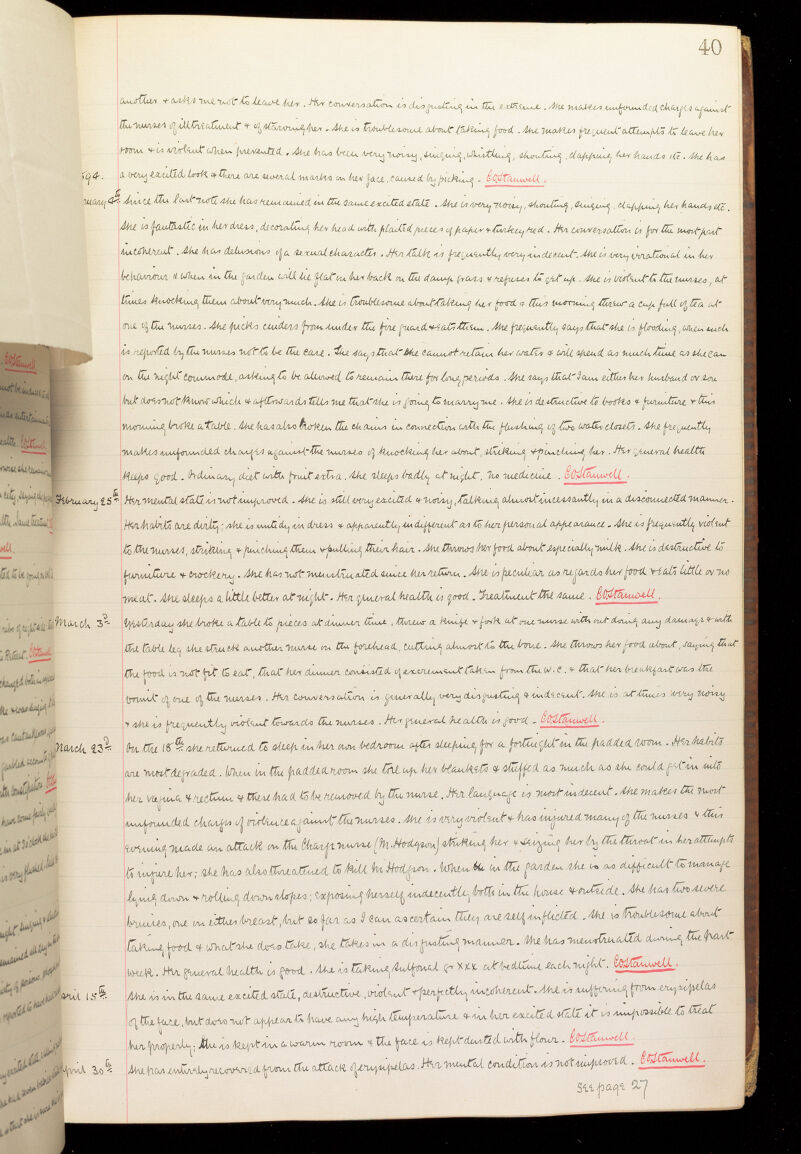 40
another & asks me not to leave her. Her conversation is disgusting in the extreme. She makes unfounded charges against
the nurses of illtreatment & of starving her. She is troublesome about taking food. She makes frequent attempts to leave her
room & is violent when prevented. She has been very noisy, singing, whistling, shouting, clapping her hands etc. She has
a very excited look & there are several marks on her face, caused by picking - C.O.Stanwell.
94.
uary 4th Since the last note she has remained in the same excited state. She is very noisy, shouting, singing, clapping her hands etc.
She is fantastic in her dress, decorating her head with plaited pieces of paper & turkey red. Her conversation is for the most part
incoherent. She has delusions of a sexual character. Her talk is frequently very indecent. She is very irrational in her
behaviour & when in the garden will lie flat on her back on the damp grass & refuses to get up. She is violent to the nurses, at
times knocking them about very much. She is troublesome about taking her food & this morning threw a cup full of tea at
one of the nurses. She picks cinders from under the fire guard & eats them. She frequently says that she is flooding, when such
is reported by the nurses not to be the case. She says that she cannot retain her water & will spend as much time as she can
on the night commode, asking to be allowed to remain there for long periods. She says that I am either her husband or son
but does not know which & afterwards tells me that she is going to marry me. She is destructive to books & furniture & this
morning broke a table. She has also broken the chains in connection with the flushing of two water closets. She frequently
makes unfounded charges against the nurses of knocking her about, striking & pinching her. Her general health
keeps good. Ordinary diet with fruit extra. She sleeps badly at night. No medicine. C.O.Stanwell.
February 25th Her mental state is not improved. She is still very excited & noisy, talking almost incessantly in a disconnected manner.
Her habits are dirty: she is untidy in dress & apparently indifferent as to her personal appearance. She is frequently violent
to the nurses, striking & pinching them & pulling their hair. She throws her food about especially milk. She is destructive to
furniture & crockery. She has not menstruated since her return. She is peculiar as regards her food & eats little or no
meat. She sleeps a little better at night. Her general health is good. Treatment the same. C.O.Stanwell.
March 3d Yesterday she broke a table to pieces at dinner time, threw a knife & fork at one nurse without doing any damage & with
the table leg she struck another nurse on the forehead, cutting almost to the bone. She throws her food about, saying that
the food is not fit to eat, that her dinner consisted of excrement taken from the W.C. & that her breakfast was the
vomit of one of the nurses. Her conversation is generally very disgusting & indecent. She is at times very noisy
& she is frequently violent towards the nurses. Her general health is good - C.O.Stanwell.
March 23d On the 18th she returned to sleep in her own bedroom after sleeping for a fortnight in the padded room. Her habits
are most degraded. When in the padded room she tore up her blankets & stuffed as much as she could get in into
her vagina & rectum & these had to be removed by the nurse. Her language is most indecent. She makes the most
unfounded charges of violence against the nurses. She is very violent & has injured many of the nurses & this
evening made an attack on the Charge nurse (M.Hodgson) striking her & seizing her by the throat in her attempts
to injure her; she has also threatened to kill M.Hodgson. When in the garden she is as difficult to manage
lying down & rolling down slopes; exposing herself indecently both in the house & outside. She has two severe
bruises, one on either breast, but so far as I can ascertain they are self inflicted. She is troublesome about
taking food & what she does take, she takes in a disgusting manner. She has menstruated during the past
week. Her general health is good. She is taking Sulfonal gr XXX at bedtime each night. C.O.Stanwell.
April 15th She is in the same excited state, destructive, violent & perfectly incoherent. She is suffering from erysipelas
of the face, but does not appear to have any high temperature & in her excited state it is impossible to treat
her properly; she is kept in a warm room & the face is kept dusted with flour. C.O.Stanwell.
April 30th She has entirely recovered from the attack of erysipelas. Her mental condition is not improved. C.O.Stanwell.
See page 27